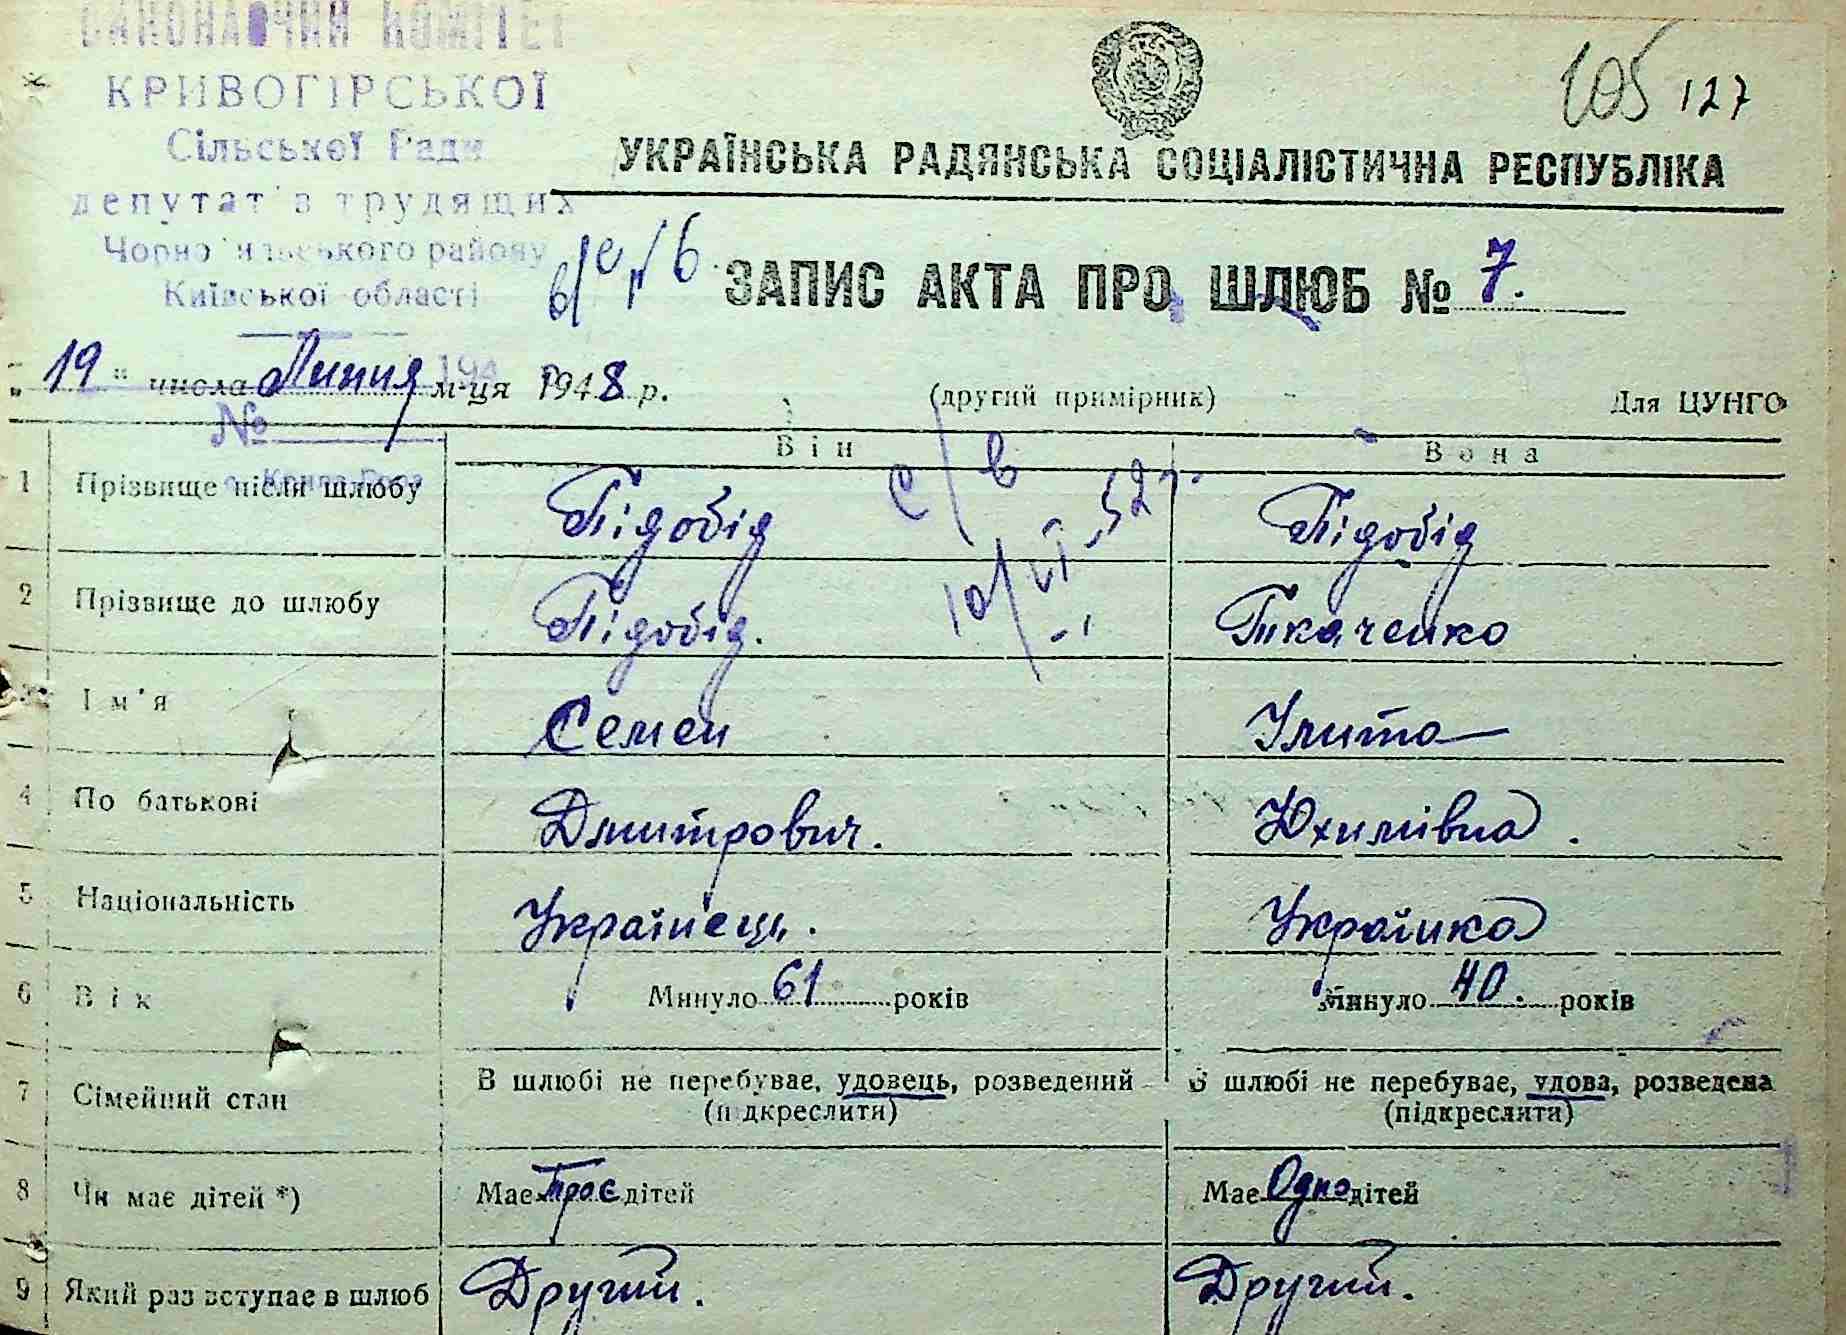 ВИКОНАВЧИЙ КОМІТЕТ
КРИВОГІРСЬКОЇ
Сільської Ради
депутатів трудящих
Чорнобильського району
Київської області
105 127
УКРАЇНСЬКА РАДЯНСЬКА СОЦІАЛІСТИЧНА РЕСПУБЛІКА
ЗАПИС АКТА ПРО ШЛЮБ № 7.
„19" числа Липня м-ця 1948 р.
(другий примірник)
Для ЦУНГО
№
Він Вона
1 Прізвище після шлюбу Підобід Підобід
2 Прізвище до шлюбу Підобід. Ткаченко
3 Ім'я Семен Улита
4 По батькові Дмитрович. Юхимівна.
5 Національність Українець. Українка
6 Вік Минуло 61 років Минуло 40. років
7 Сімейний стан В шлюбі не перебуває, удовець, розведений (підкреслити) В шлюбі не перебуває, удова, розведена (підкреслити)
8 Чи має дітей *) Має Троє дітей Має Одно дітей
9 Який раз вступає в шлюб Другий. Другий.